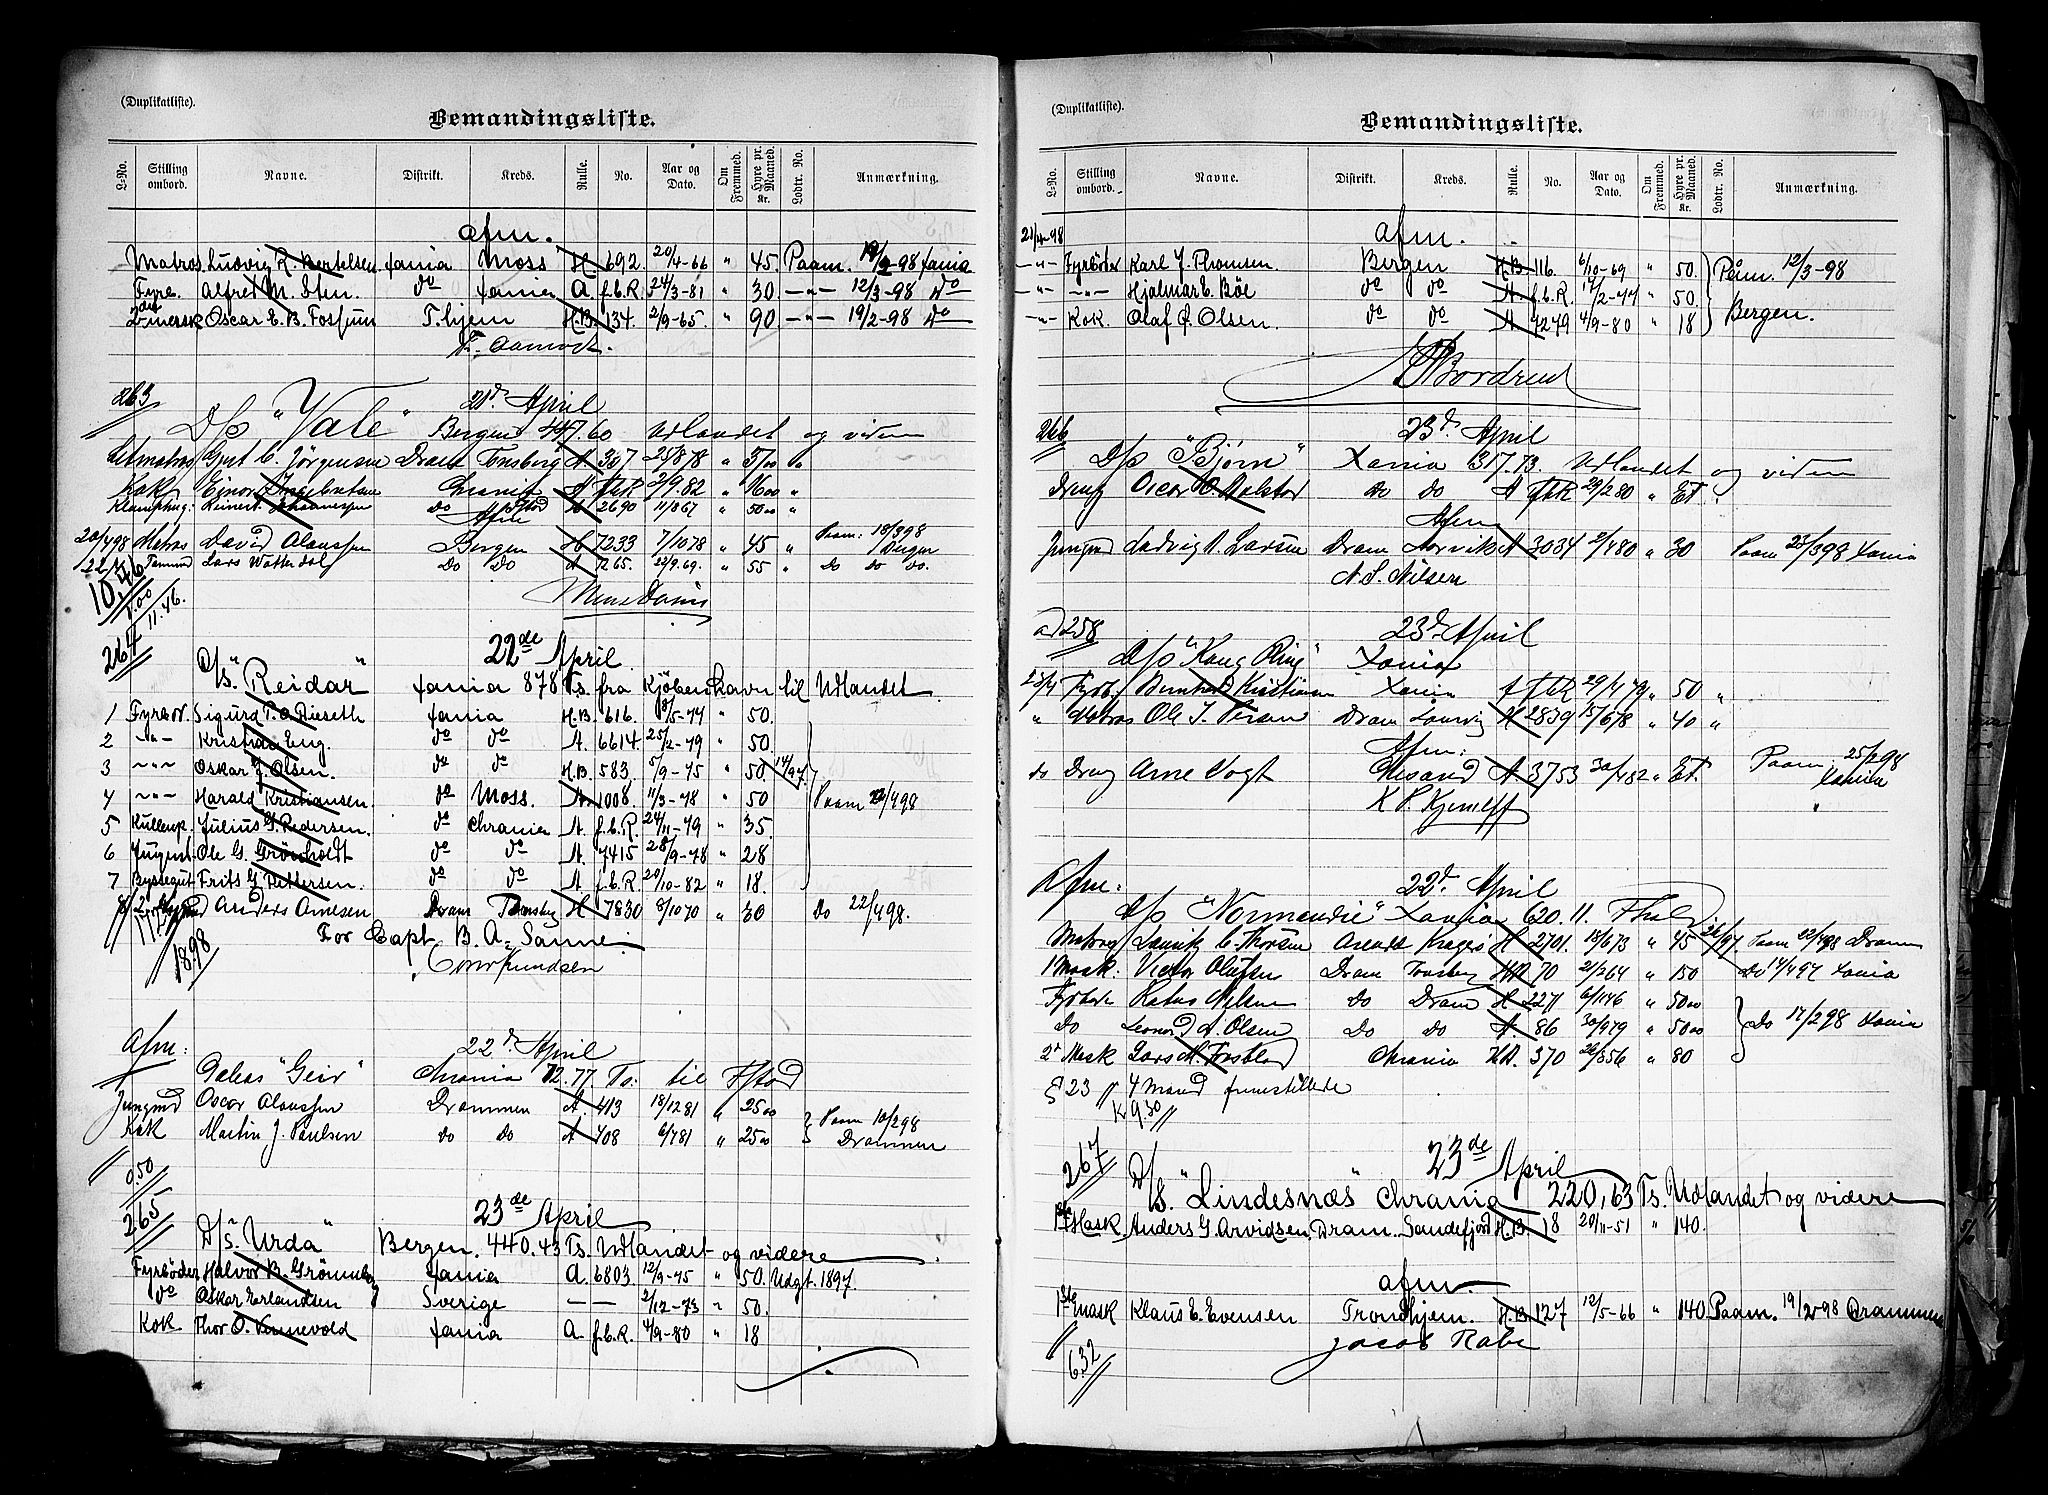 (Duplikatliste).
Bemandingsliste.
L-No. Stilling ombord. Navne. Distrikt. Kreds. Rulle. No. Aar og Dato. Om Fremmed. Hyre pr. Maaned. Kr. Lodtr. No. Anmærkning.
afm.
Matros Ludvig R. Bertelsen fania Moss H. 692 20/4-66 " 45. Paam. 19/2-98 fania
Fyrb. Alfred M. Sten. do fania A. f.b.R. 24/3-81 " 30 -"- 12/3-98 do
2den mask Oscar E. B. Fossum T.hjem H.B. 134. 2/9-65. " 90 -"- 19/2-98 do
263
21de April
D/s "Vale" Bergen 447.60 Udlandet og videre
Letmatros Gust C. Jörgensen Dram Tonsberg A 307 25/878 " 3700 "
Kok Ejnar Ingebretsen Chrania A fbR 2/9.82 " 1600 "
do A 2690 11/867 " 5000 "
Afm
20/498 Matros David Olaussen Bergen H 7233 7/1078 " 45 " Paam: 18/398 Bergen
22 Lars Watterdal Do Do A 7265. 22/9.69. " 55 " Do do do.
10,46
1.00
11.46.
264
22de April
D/S. "Reidar" fania 878 Ts. fra Kjöbenhavn til Udlandet
1 Fyrbör. Sigurd T. O. Rieseth fania H.B. 616. 8/5-77 " 50.
2 -"- Kristian Eng. do do A. 6614. 25/2-79 " 50.
3 -"- Oskar J. Olsen. do do H.B. 583. 5/9-75 " 50. 14/97
4 -"- Harald Kristiansen do Moss. A. 1008. 11/3-78 " 50 Paam 22/498
5 Kullemp. Julius G. Pedersen. do Chrania A. f.b.R. 24/11-79 " 35.
6 Jugmd. Ole G. Grönholdt do do A. 7415 28/9-78 " 28
7 Byssegut Frits G. Pettersen. do do A. f.b.R. 20/10-82 " 18.
8 Anders Arnesen Dram Tønsberg H 7830 8/1070 " 30 Do 22/498.
For Capt. B. A. Sanne
1898
Afm:
22de April
Galeas "Geir" Chrania 72.77 Ts: til Fstad
Jungmd Oscar Olaussen Drammen A. 413 18/1281 " 2500 Paam 10/298
Kok Martin J. Paulsen do do A 408 6/781 " 2500 Drammen
0.50
265
23de April
D/S "Urda" Bergen. 440.43 Ts. Udlandet og videre
Fyrböder Halvor B. Grönneberg fania A. 6803. 12/9-75 " 50. Udgt. 1897.
do Oskar Erlandsen Sverige — — 2/12-73 " 50.
Kok Thor O. Vennevold fania A. f.b.R. 4/9-80 " 18
(Duplikatliste).
Bemandingsliste.
L-No. Stilling ombord. Navne. Distrikt. Kreds. Rulle. No. Aar og Dato. Om Fremmed. Hyre pr. Maaned. Kr. Lodtr. No. Anmærkning.
21/4-98 afm.
-"- Fyrböder Karl J. Thomsen. Bergen H.B. 116. 6/10-69 " 50. Påm. 12/3-98
-"- -"- Hjalmar E. Böe do do A. f.b.R. 14/2-77 " 50.
-"- Kok. Olaf J. Olsen. do do A. 7279 4/9-80 " 18 Bergen.
266
23de April
D/s "Bjørn" Xania 317.73. Udlandet og videre
Dreng Oscar O. Dalstad do do A fbR 29/280 " Et.
Afm
Jungmd Ludvig A. Larsen Dram Larvik A 3034 2/480 " 30 Paam 25/398 Xania
N. S. Nilsen
ad 258 23de April
D/s "Kong Ring" Xania
23/4 Fyrb. Bernhard Kristiansen Xania f fbR 29/4 79 " 50 "
" Matros Ole J. Dram Laurvig A 2839 15/678 " 40 "
Afm:
do Dreng Arne Vogt Chrsand A. 3753 30/482 " Et. Paam: 25/298 Xania
Afm:
22de April
D/s "Normandie" Xania 620.11. Fhald
Matros C. Thorsen Arendl Kragerö H 2701. 18/673 " 45 26/97 Paam 22/498 Dramn
1 Mask. Victor Olufsen Dram Tonsberg HB 70 21/264 " 150 Do 14/497 Xania
Fyrböder Nilsen Do Dram H 2271 6/1146 " 5000
Do Leonard A. Olsen Do Do A. 86 30/979 " 5000 Do 17/298 Xania
2de Mask Lars M. Forsblad Chrania HB. 370 26/856 " 80
§ 23 // 4 Mand fremstillede
Kr 9.30 //
267
23de April
D/S. "Lindesnæs" Chrania 220,63 Ts. Udlandet og videre
1ste Mask Anders G. Arvidsen, Dram. Sandefjord H.B. 18 20/11-51 " 140.
afm.
1ste mask Klaus E. Evensen Trondhjem. H.B. 127 12/5-66 " 140 Paam. 19/2-98 Drammen
Jacob Rabe
632